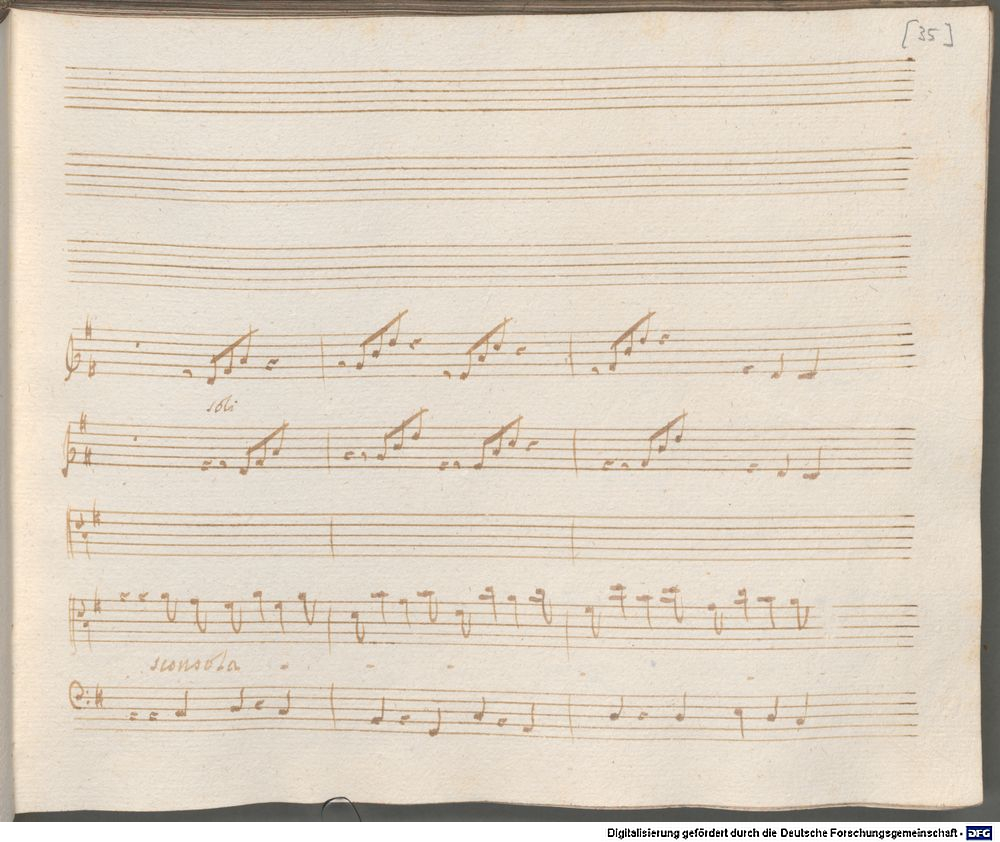 [35]
soli
sconsola - - - - -
Digitalisierung gefördert durch die Deutsche Forschungsgemeinschaft - DFG